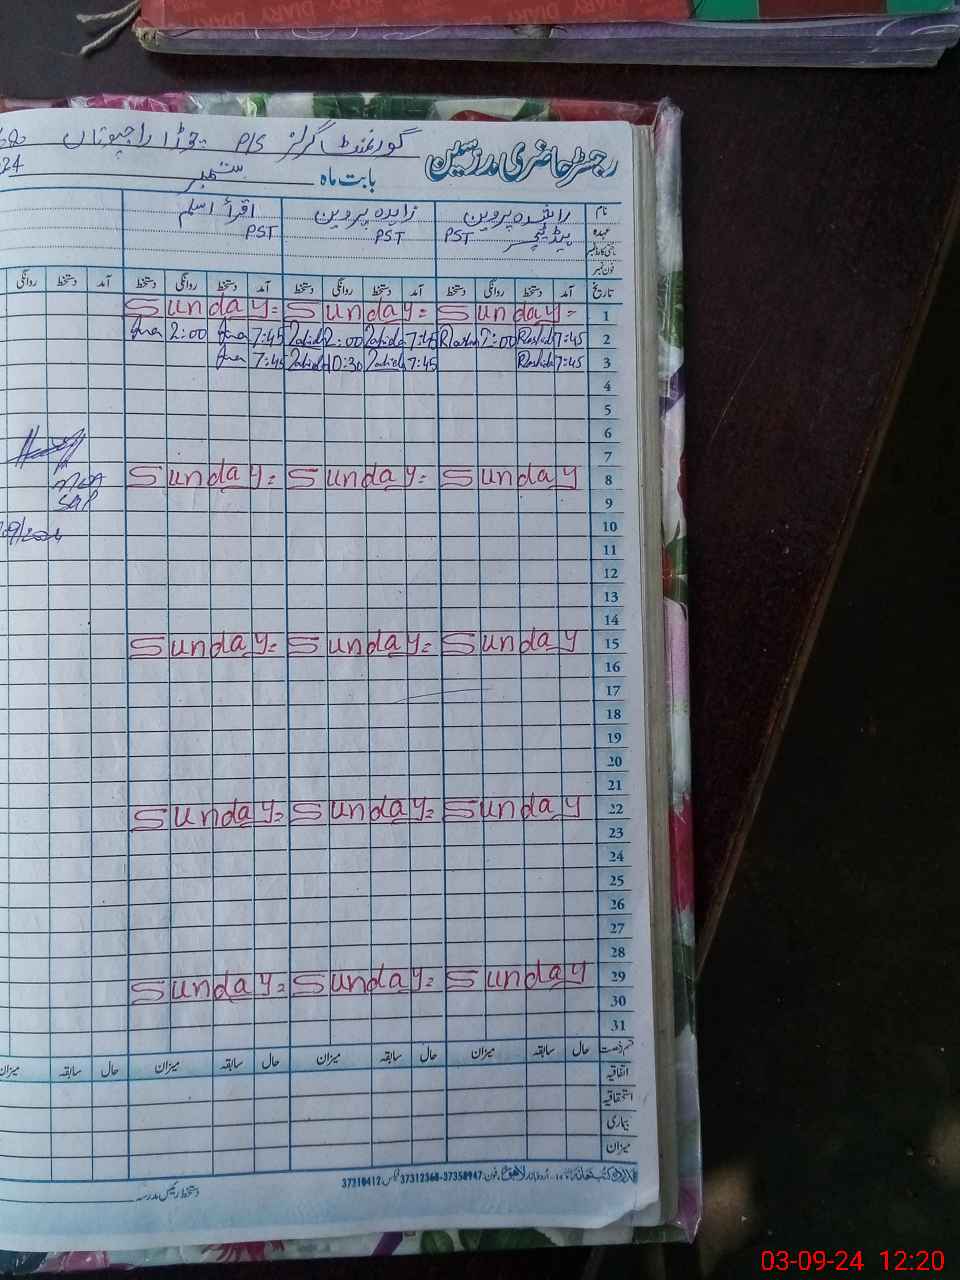 DIARY DIARY
رجسٹر حاضری مدرسین گورنمنٹ گرلز P/S راجپوتاں
بابت ماہ ستمبر 24
نام راشدہ پروین زاہدہ پروین اقرأ اسلم
عہدہ ہیڈ ٹیچر PST PST PST
فون نمبر
تاریخ آمد دستخط روانگی دستخط آمد دستخط روانگی دستخط آمد دستخط روانگی دستخط آمد دستخط روانگی
1 Sunday= Sunday= Sunday=
2 7:45 Rashida 7:45 Zahida 2:00 Zahida 7:45 Iqra 2:00 Iqra
3 7:45 Rashida 7:45 Zahida 10:30 Zahida 7:45 Iqra
4
5
6
7
8 Sunday Sunday= Sunday=
9
10
11
12
13
14
15 Sunday Sunday= Sunday=
16
17
18
19
20
21
22 Sunday Sunday= Sunday=
23
24
25
26
27
28
29 Sunday Sunday= Sunday=
30
31
قسم رخصت حال سابقہ میزان حال سابقہ میزان حال سابقہ میزان حال سابقہ میزان
اتفاقیہ
استحقاقیہ
بیماری
میزان
37358947-37312368 37310412
دستخط رئیس مدرسہ
03-09-24 12:20